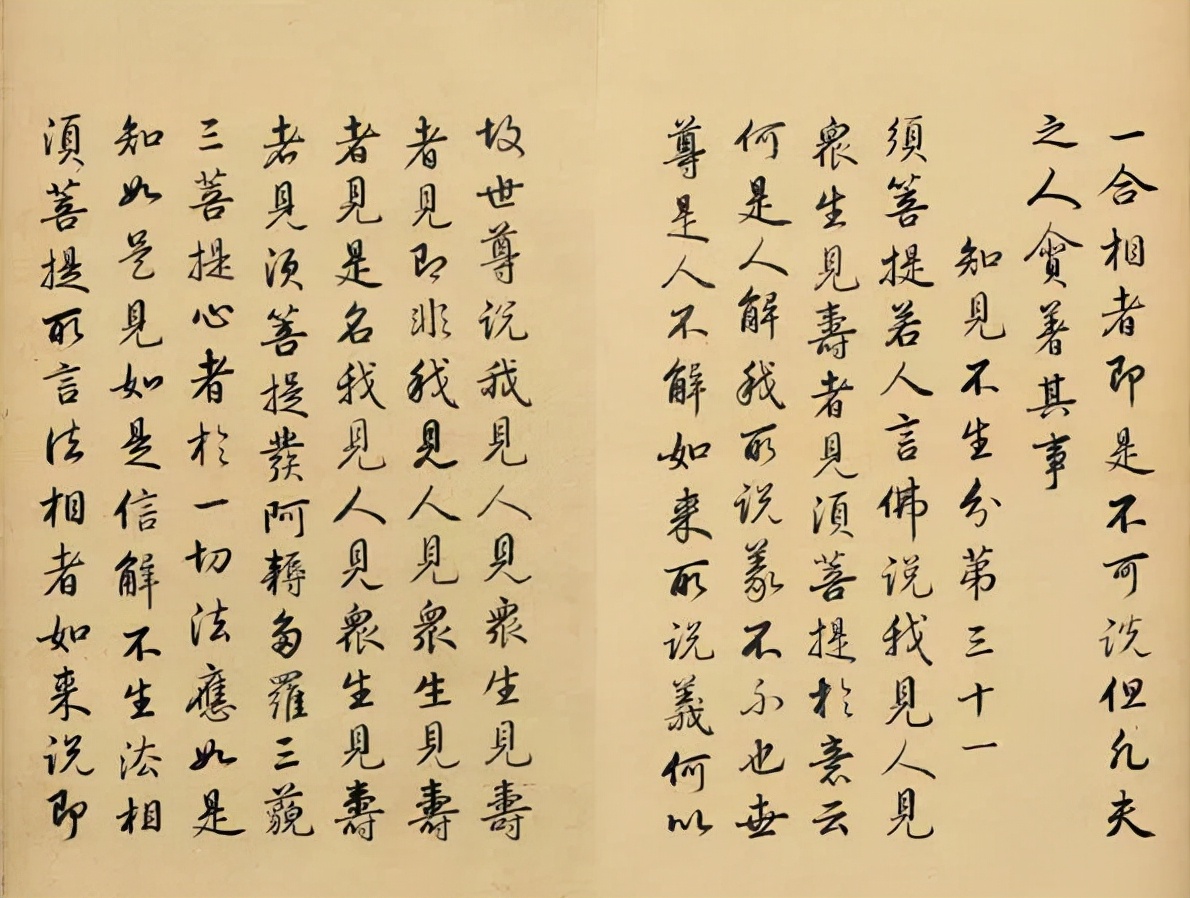 一合相者即是不可說但凡夫
之人貪著其事
知見不生分第三十一
須菩提若人言佛說我見人見
衆生見壽者見須菩提於意云
何是人解我所說義不不也世
尊是人不解如来所說義何以
故世尊說我見人見衆生見壽
者見即非我見人見衆生見壽
者見是名我見人見衆生見壽
者見須菩提發阿耨多羅三藐
三菩提心者於一切法應如是
知如是見如是信解不生法相
須菩提所言法相者如来說即